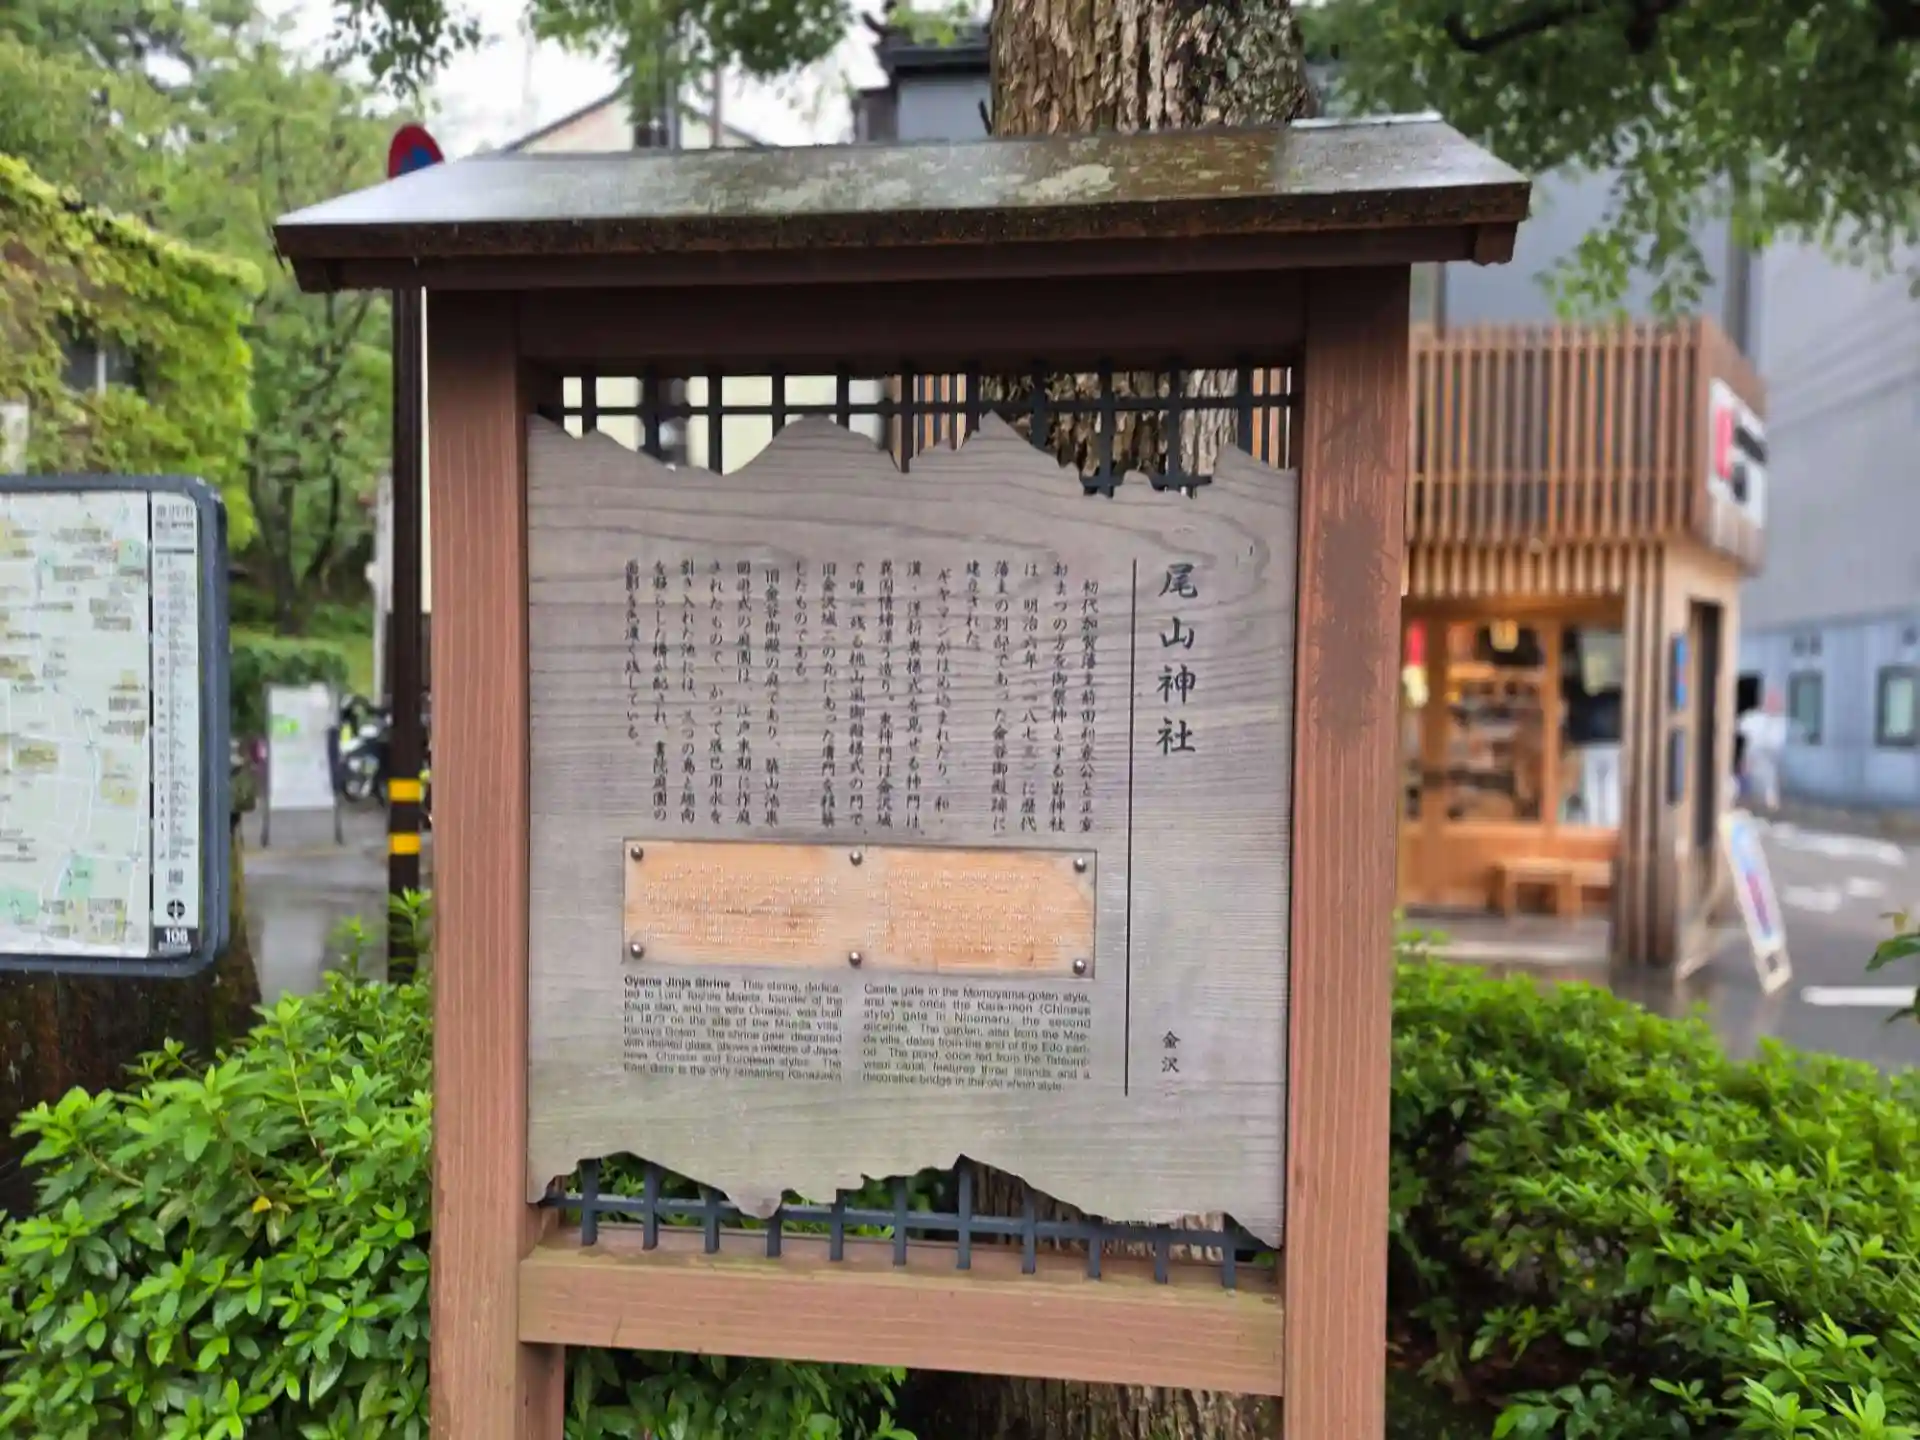 尾山神社
初代加賀藩主前田利家公と正室
おまつの方を御祭神とする当神社
は、明治六年(一八七三)に歴代
藩主の別邸であった金谷御殿跡に
建立された。
ギヤマンがはめ込まれたり、和・
漢・洋折衷様式を見せる神門は、
異国情緒漂う造り。東神門は金沢城
で唯一残る桃山風御殿様式の門で、
旧金沢城二の丸にあった唐門を移築
したものである。
旧金谷御殿の庭であり、築山池泉
回遊式の庭園は、江戸末期に作庭
されたもので、かつて辰巳用水を
引き入れた池には、三つの島と趣向
を凝らした橋が配され、書院庭園の
面影を色濃く残している。
金沢
Oyama Jinja Shrine This shrine, dedica-
ted to Lord Toshiie Maeda, founder of the
Kaga clan, and his wife Omatsu, was built
in 1873 on the site of the Maeda villa,
Kanaya Goten. The shrine gate, decorated
with stained glass, shows a mixture of Japa-
nese, Chinese and European styles. The
East Gate is the only remaining Kanazawa
Castle gate in the Momoyama-goten style,
and was once the Kara-mon (Chinese
style) gate in Ninomaru, the second
enceinte. The garden, also from the Mae-
da villa, dates from the end of the Edo peri-
od. The pond, once fed from the Tatsumi-
yosui canal, features three islands and a
decorative bridge in the old shoin style.
108